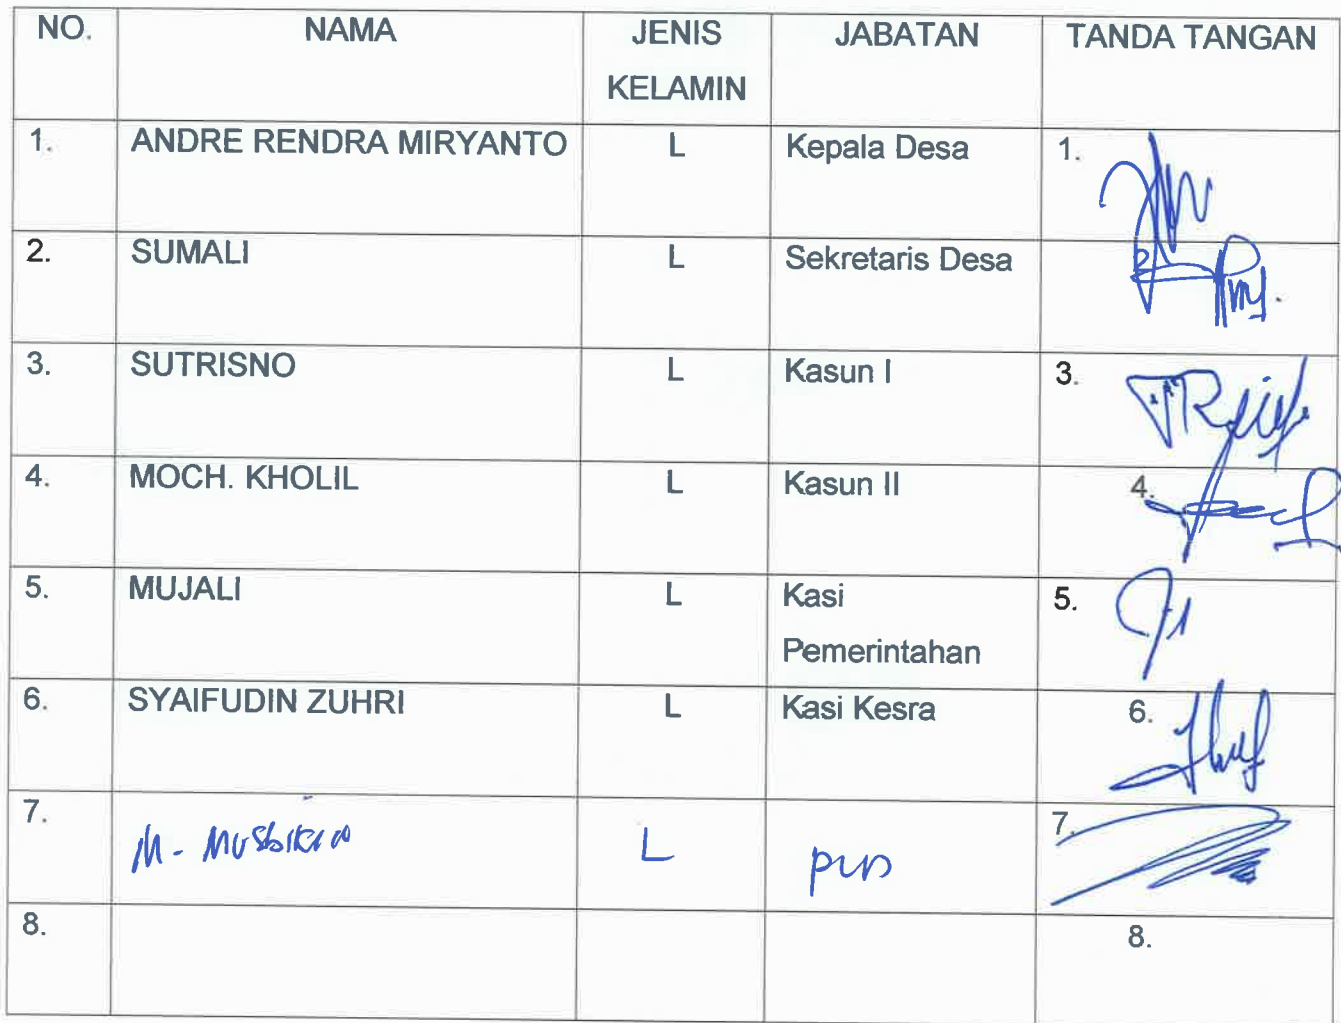 NO. NAMA JENIS KELAMIN JABATAN TANDA TANGAN
1. ANDRE RENDRA MIRYANTO L Kepala Desa 1.
2. SUMALI L Sekretaris Desa 2
3. SUTRISNO L Kasun I 3.
4. MOCH. KHOLIL L Kasun II 4.
5. MUJALI L Kasi Pemerintahan 5.
6. SYAIFUDIN ZUHRI L Kasi Kesra 6.
7. M. L 7.
8. 8.